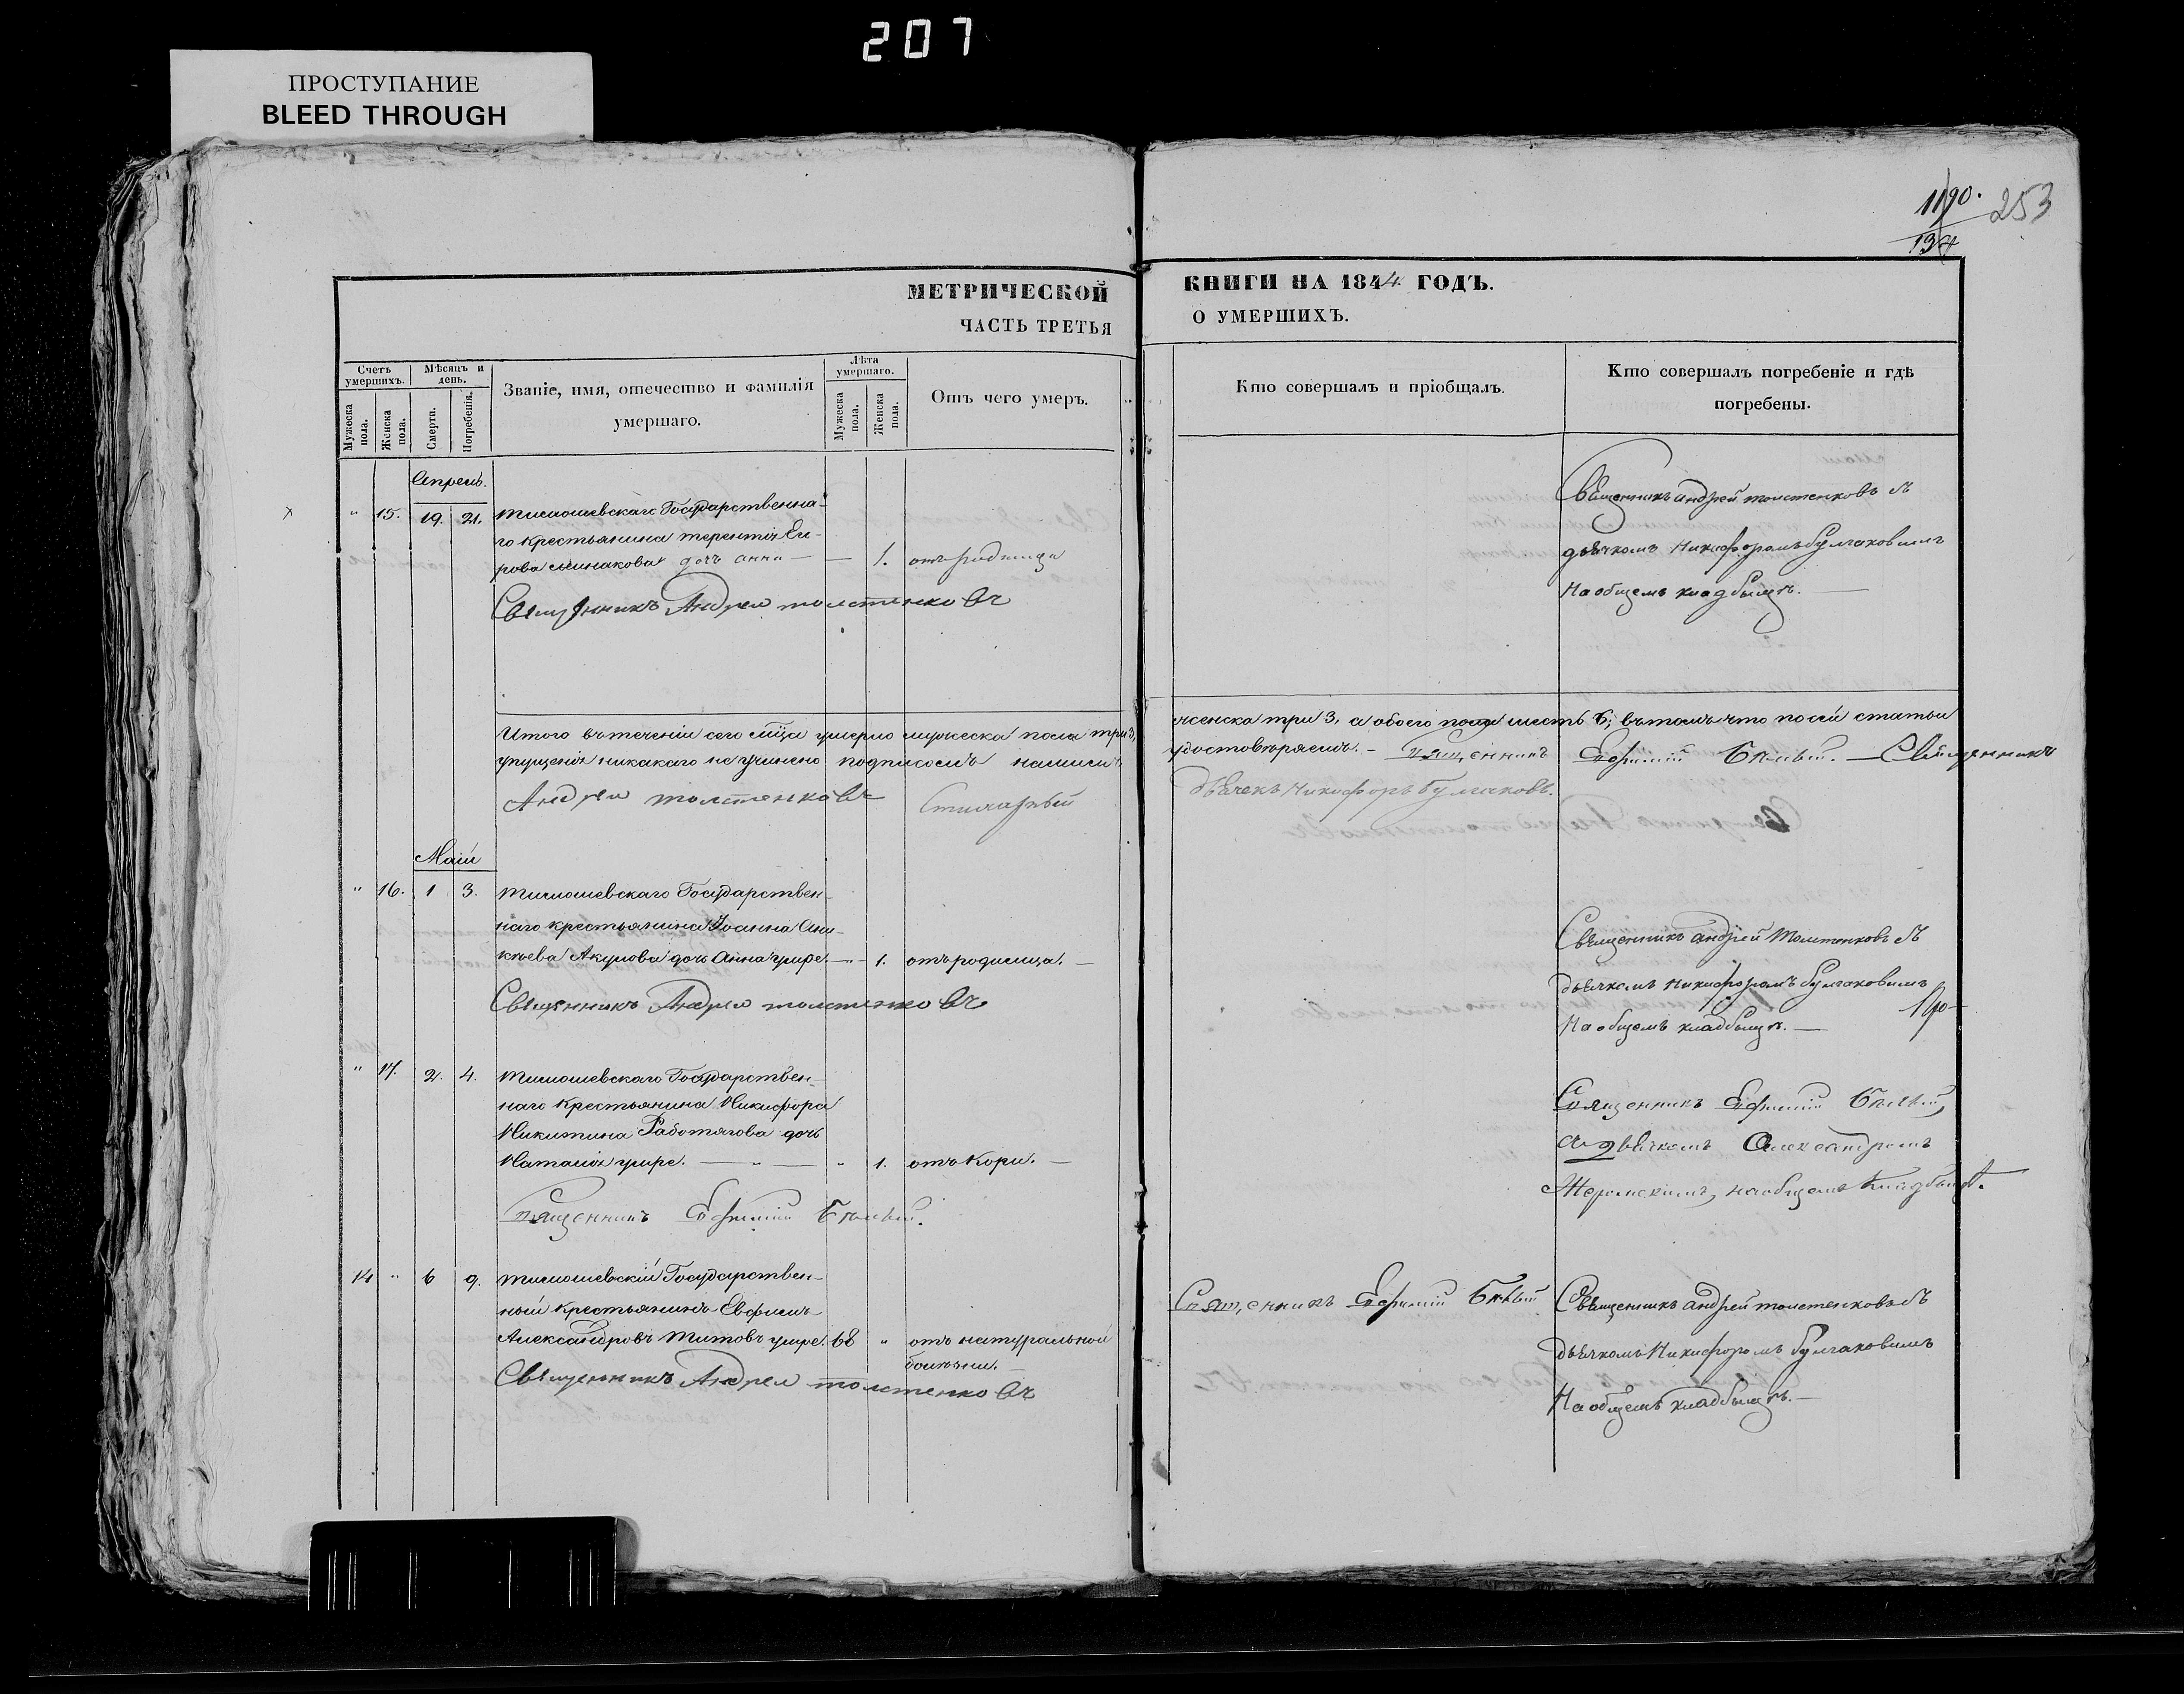 207
ПРОСТУПАНИЕ
BLEED THROUGH
1190.
253
134
МЕТРИЧЕСКОЙ
ЧАСТЬ ТРЕТЬЯ
КНИГИ НА 1844 ГОДЪ.
О УМЕРШИХЪ.
Счетъ умершихъ.
Мужеска пола.
Женска пола.
Мѣсяцъ и день.
Смерти.
Погребенія.
Званіе, имя, отечество и фамилія
умершаго.
Лѣта умершаго.
Мужеска пола.
Женска пола.
Отъ чего умеръ.
Кто совершалъ и пріобщалъ.
Кто совершалъ погребеніе и гдѣ
погребены.
Апрель.
" 15. 19. 21. Тимошевскаго Государственна-
го крестьянина терентія Его-
рова дочь анна — — 1. отъ родимца
Священникъ Андрей толстенковъ
Священникъ андрей толстенковъ съ
дьячкомъ Никифоромъ булгаковымъ
На общемъ кладбищѣ. —
Итого въ теченіи сего мца умерло мужеска пола три 3,
женска три 3, а обоего пола шесть 6; въ томъ что по сей статьи
упущенія никакаго не учинено подписомъ нашимъ
удостовѣряемъ. — Священникъ Ефимій Бѣлый. — Священникъ
Андрей толстенковъ
Дьячекъ Никифоръ булгаковъ.
Маій
" 16. 1 3. Тимошевскаго Государствен-
наго крестьянина Іоанна Ани-
кѣева Акулова дочь Анна умре. — " — 1. отъ родимца. —
Священникъ Андрей толстенковъ
Священникъ андрей Толстенковъ съ
дьячкомъ никифоромъ булгаковымъ
На общемъ кладбищѣ. —
" 17. 2. 4. Тимошевскаго Государствен-
наго крестьянина Никифора
Никитина Работягова дочь
Наталія умре. — " — " 1. отъ Кори. —
Священникъ Ефимій Бѣлый.
Священникъ Ефимій Бѣлый,
съ дьячкомъ Александромъ
на общемъ кладбищѣ.
14 " 6 9. Тимошевскій Государствен-
ный крестьянинъ Евфимъ
Александровъ Титовъ умре. 68 " отъ натуральной
болѣзни. —
Священникъ Андрей толстенковъ
Священникъ Ефимій Бѣлый
Священникъ андрей толстенковъ съ
дьячкомъ Никифоромъ булгаковымъ
На общемъ кладбищѣ. —